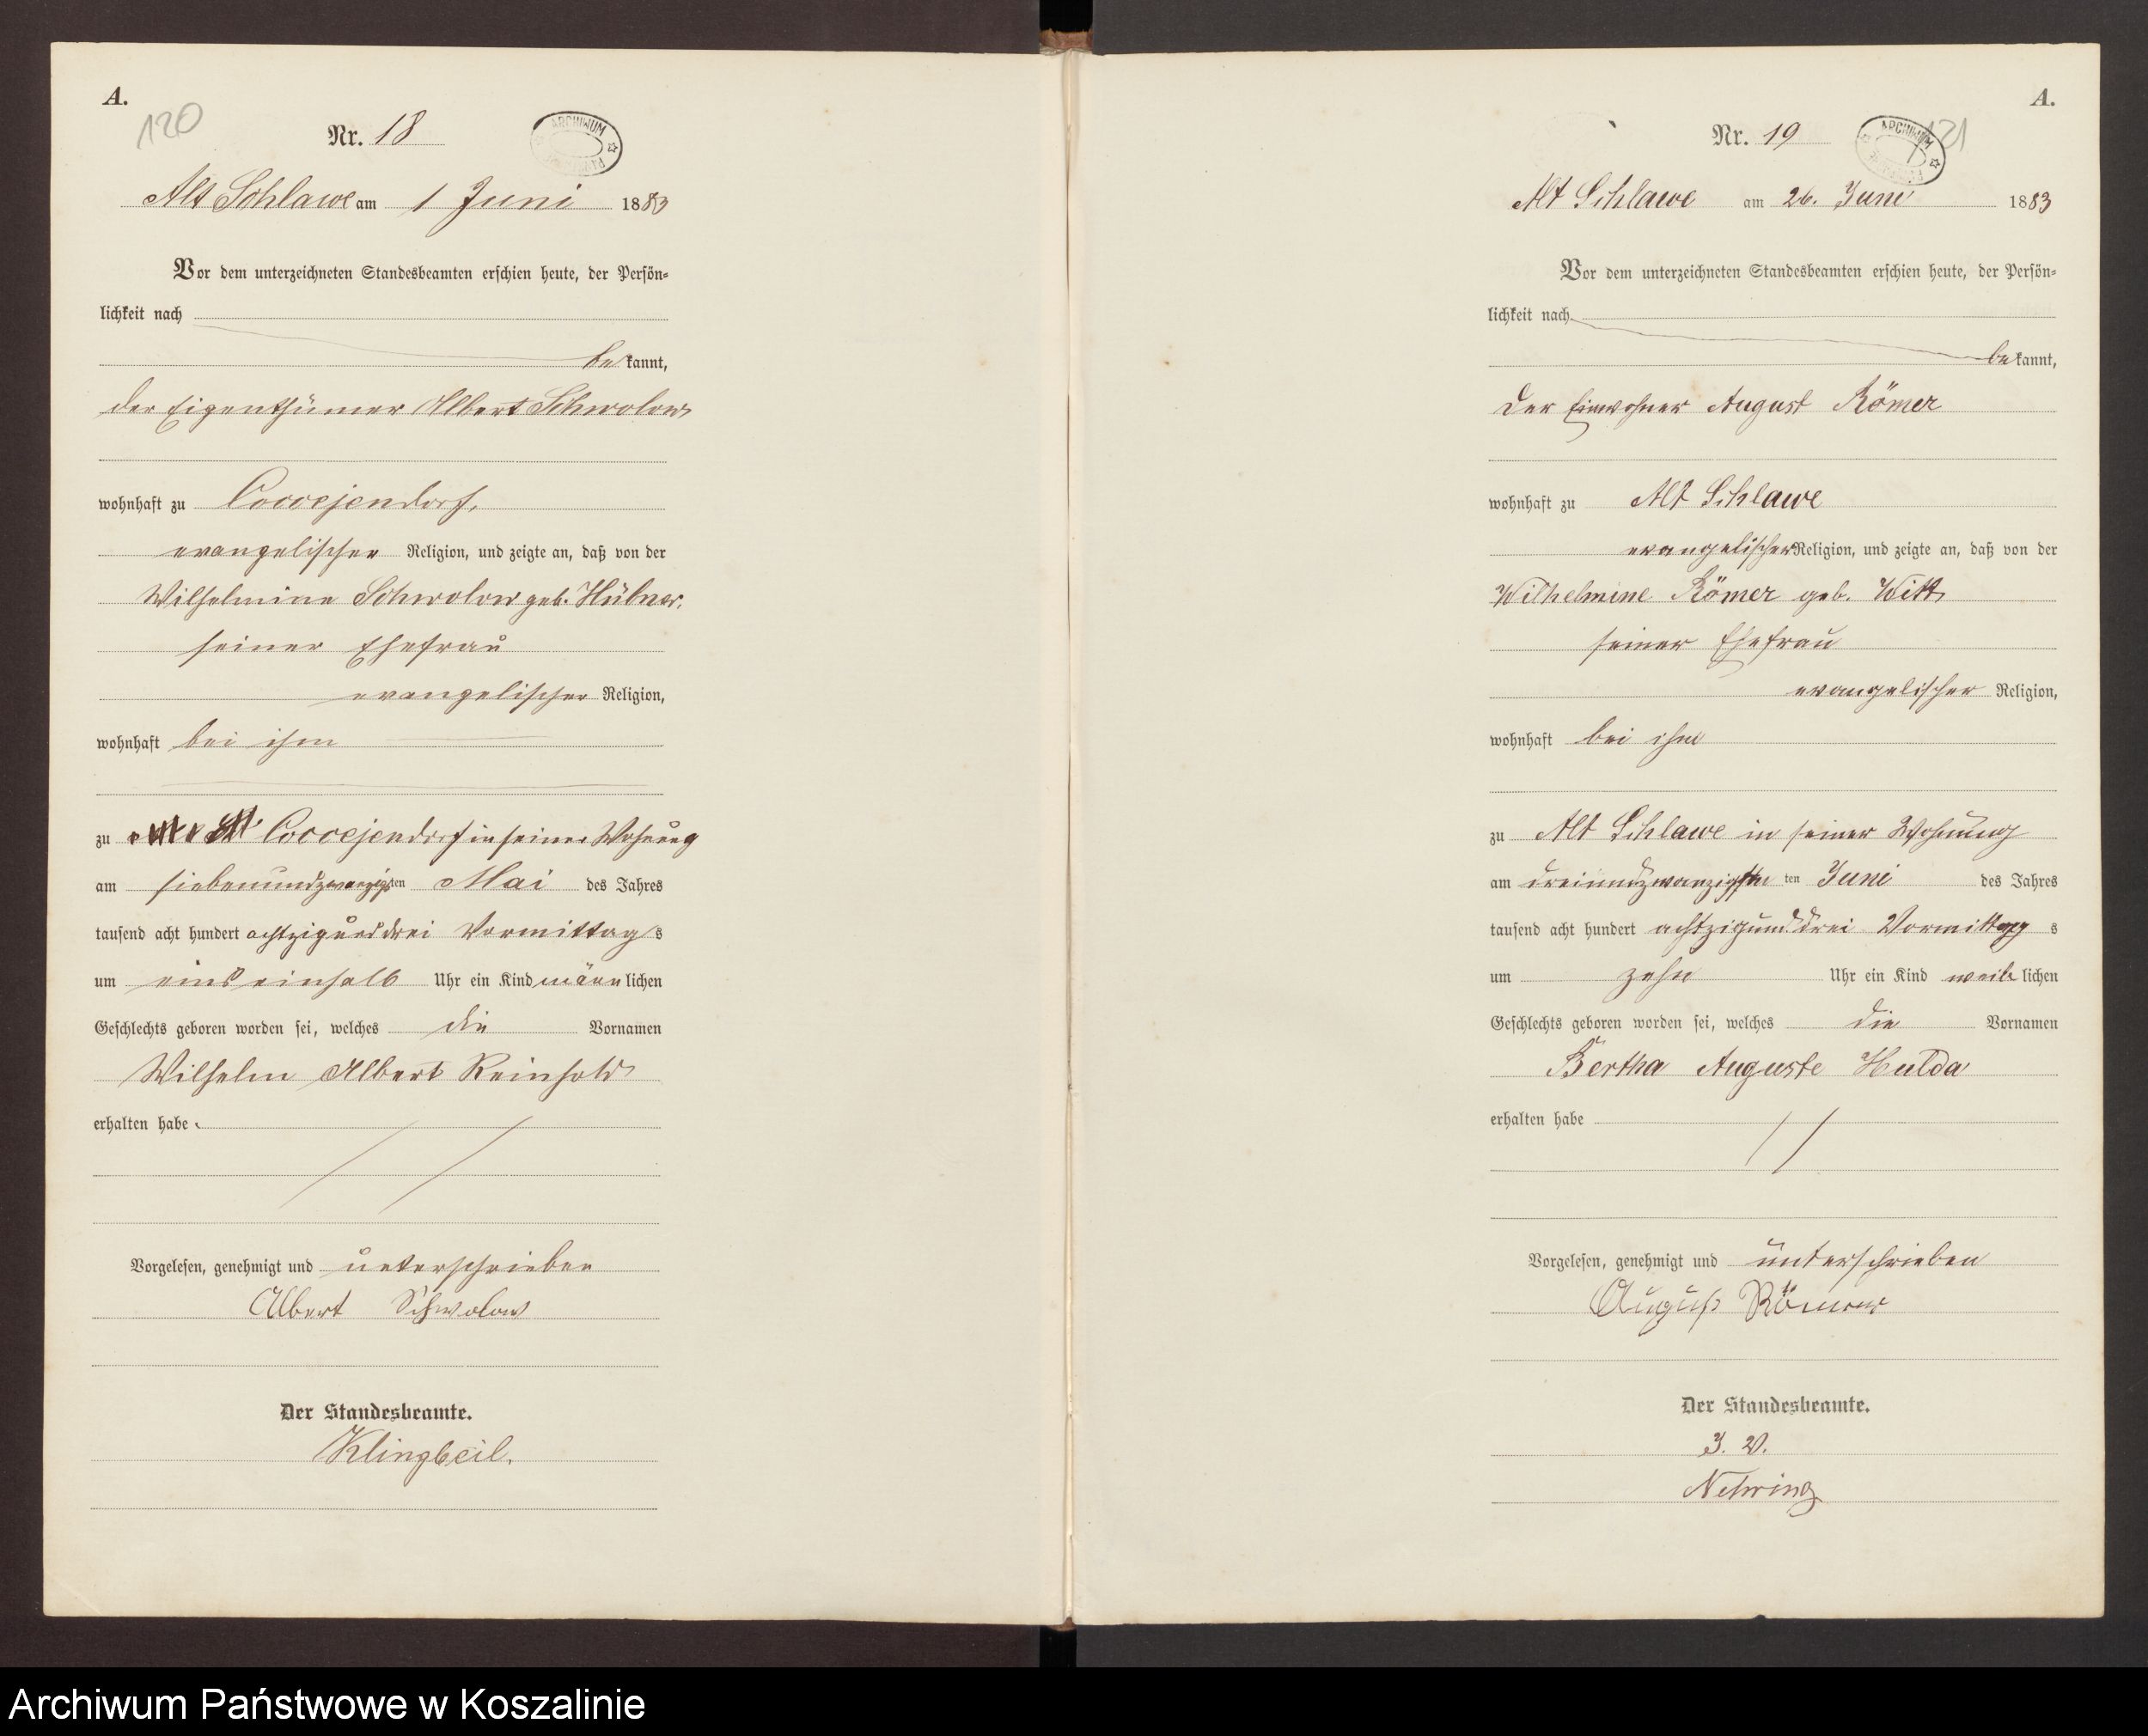 A.
120
Nr. 18
ARCHIWUM
Alt Schlawe am 1 Juni 1883
Vor dem unterzeichneten Standesbeamten erschien heute, der Persön-
lichkeit nach
bekannt,
der Eigenthümer Albert Schwolow
wohnhaft zu Coccejendorf,
evangelischer Religion, und zeigte an, daß von der
Wilhelmine Schwolow geb. Hübner,
seiner Ehefrau
evangelischer Religion,
wohnhaft bei ihm
zu Coccejendorf in seiner Wohnung
am siebenundzwanzigsten Mai des Jahres
tausend acht hundert achtzigunddrei Vormittags
um eins einhalb Uhr ein Kind männlichen
Geschlechts geboren worden sei, welches die Vornamen
Wilhelm Albert Reinhold
erhalten habe
Vorgelesen, genehmigt und unterschrieben
Albert Schwolow
Der Standesbeamte.
Klingbeil.
A.
121
Nr. 19
ARCHIWUM
Alt Schlawe am 26. Juni 1883
Vor dem unterzeichneten Standesbeamten erschien heute, der Persön-
lichkeit nach
bekannt,
der Einwohner August Römer
wohnhaft zu Alt Schlawe
evangelischer Religion, und zeigte an, daß von der
Wilhelmine Römer geb. Witt
seiner Ehefrau
evangelischer Religion,
wohnhaft bei ihm
zu Alt Schlawe in seiner Wohnung
am dreiundzwanzigsten ten Juni des Jahres
tausend acht hundert achtzigunddrei Vormittags
um zehn Uhr ein Kind weiblichen
Geschlechts geboren worden sei, welches die Vornamen
Bertha Auguste Hulda
erhalten habe
Vorgelesen, genehmigt und unterschrieben
August Römer
Der Standesbeamte.
J. V.
Nehring
Archiwum Państwowe w Koszalinie